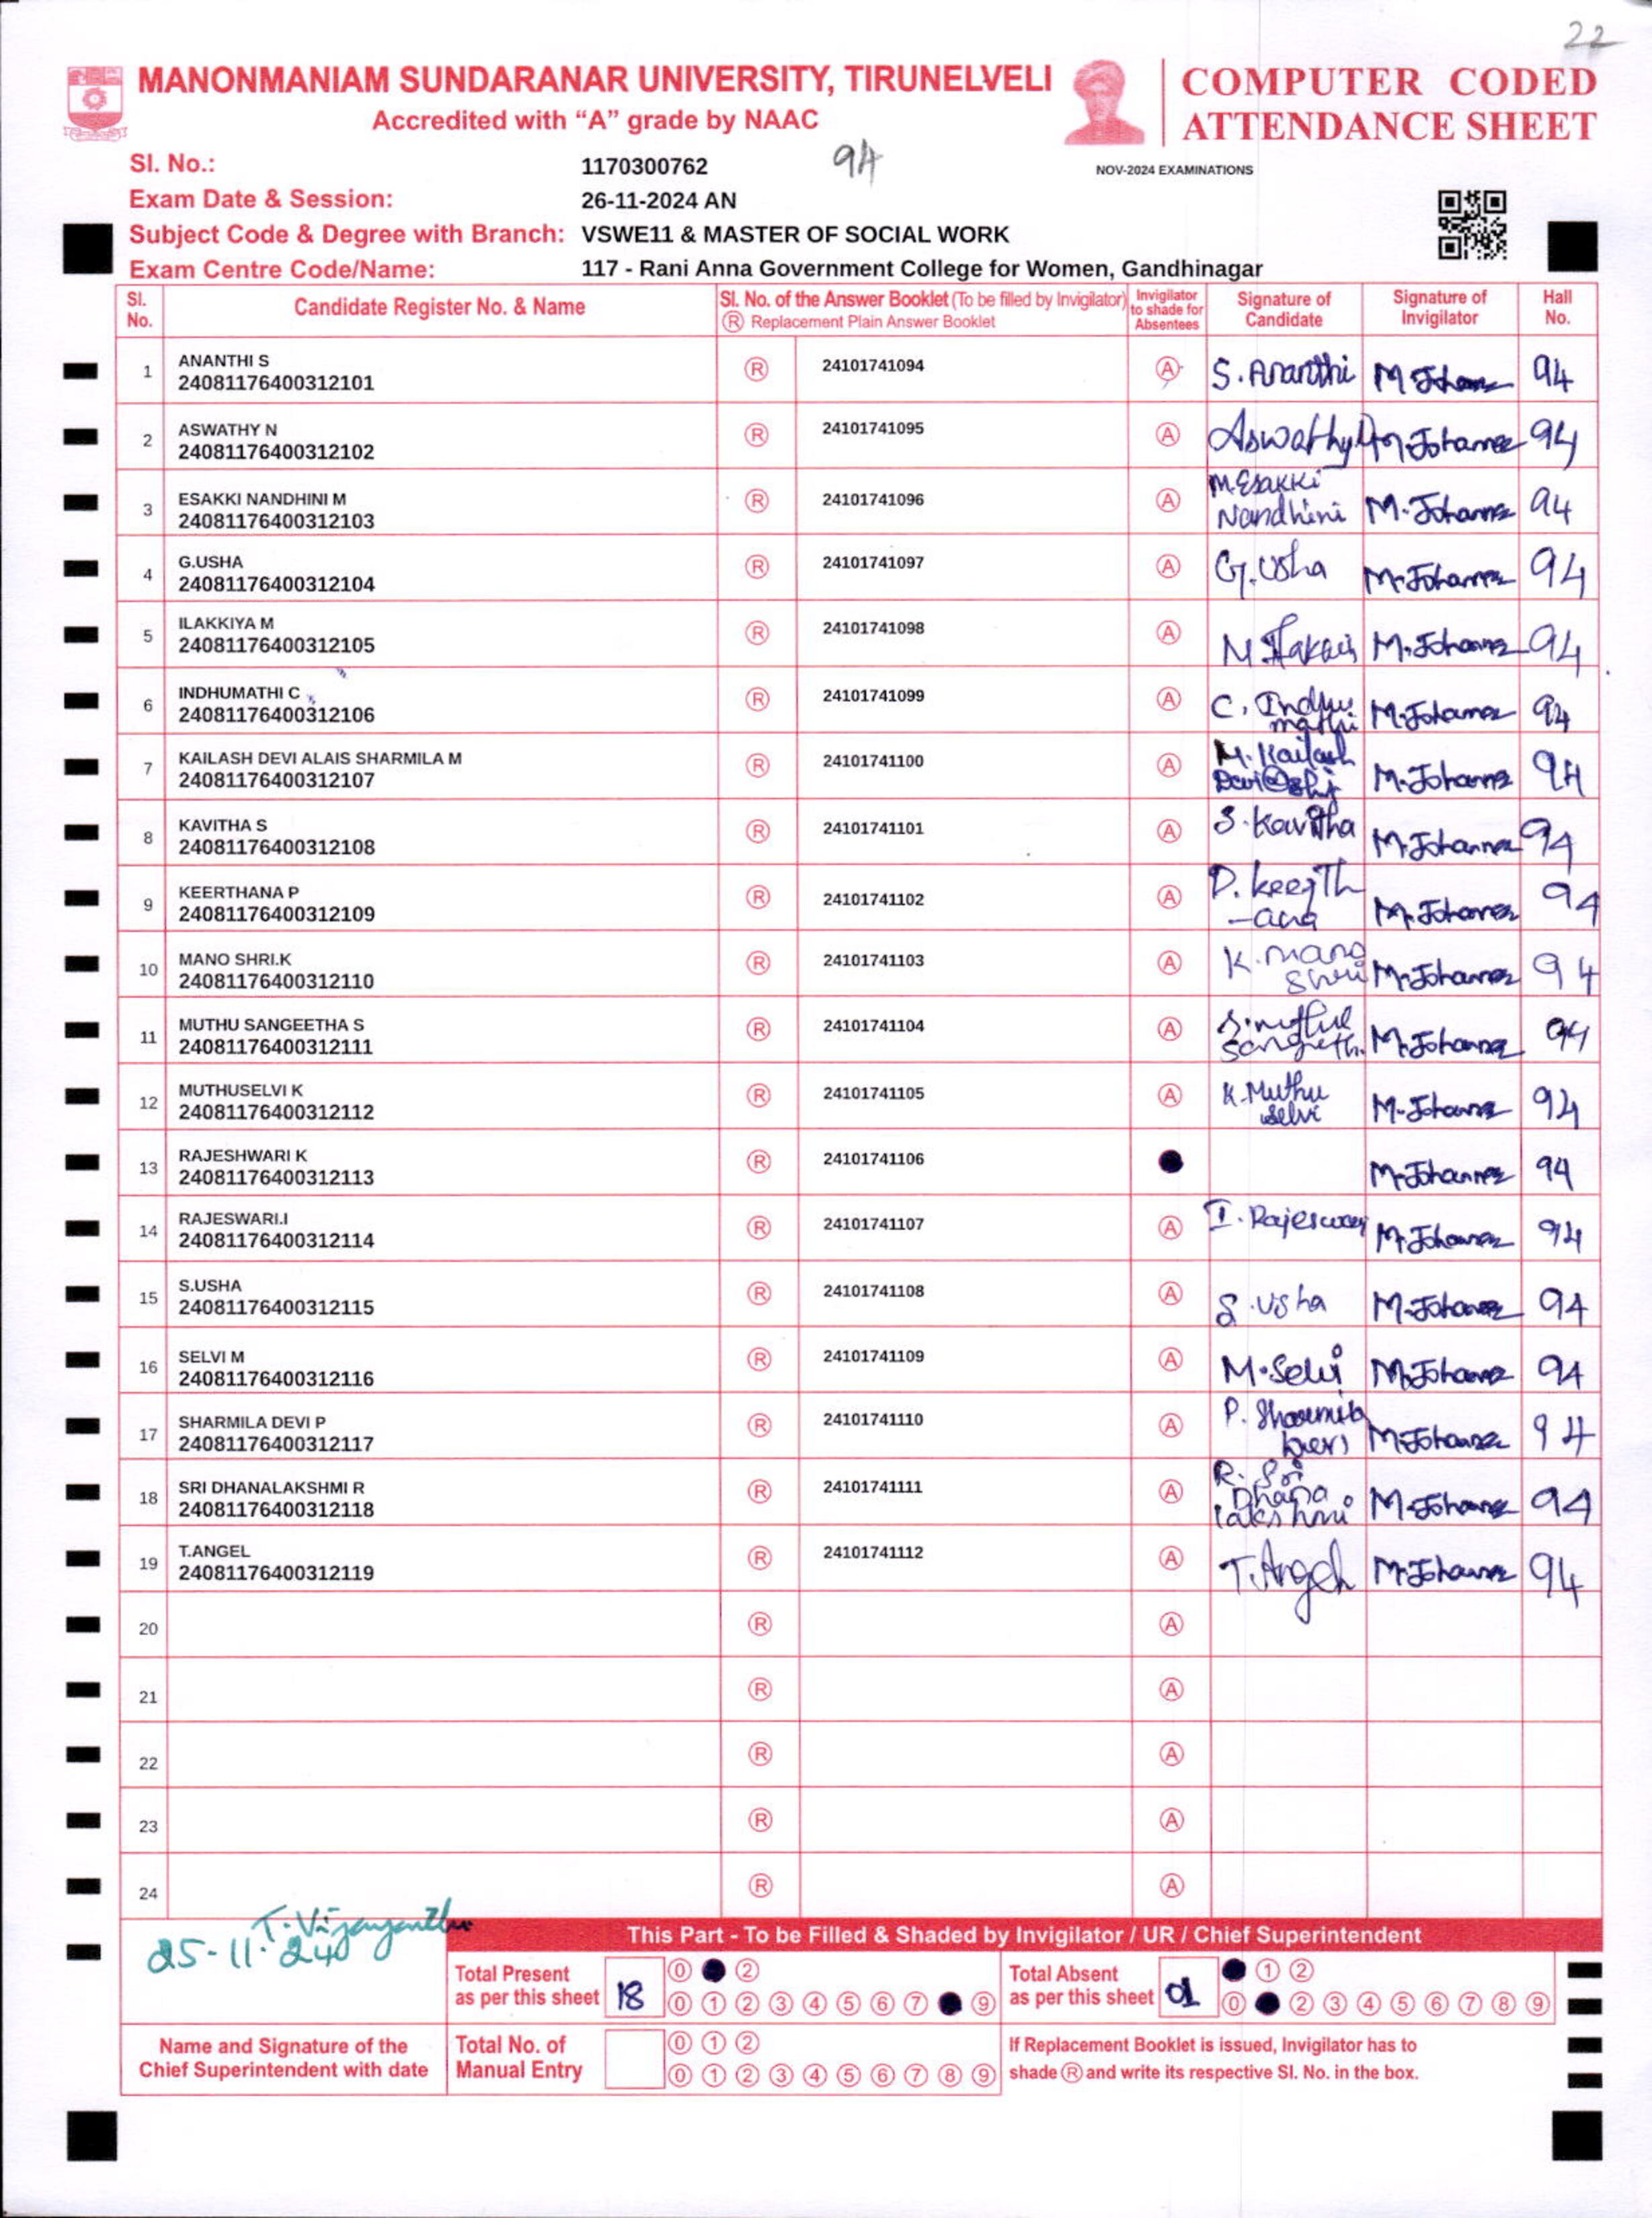 22
MANONMANIAM SUNDARANAR UNIVERSITY, TIRUNELVELI
Accredited with “A” grade by NAAC
COMPUTER CODED
ATTENDANCE SHEET
Sl. No.: 1170300762 94 NOV-2024 EXAMINATIONS
Exam Date & Session: 26-11-2024 AN
Subject Code & Degree with Branch: VSWE11 & MASTER OF SOCIAL WORK
Exam Centre Code/Name: 117 - Rani Anna Government College for Women, Gandhinagar
Sl. No. Candidate Register No. & Name Sl. No. of the Answer Booklet (To be filled by Invigilator) Ⓡ Replacement Plain Answer Booklet Invigilator to shade for Absentees Signature of Candidate Signature of Invigilator Hall No.
1 ANANTHI S 24081176400312101 Ⓡ 24101741094 Ⓐ S. Ananthi 94
2 ASWATHY N 24081176400312102 Ⓡ 24101741095 Ⓐ Aswathy 94
3 ESAKKI NANDHINI M 24081176400312103 Ⓡ 24101741096 Ⓐ M. Esakki Nandhini 94
4 G.USHA 24081176400312104 Ⓡ 24101741097 Ⓐ G. Usha 94
5 ILAKKIYA M 24081176400312105 Ⓡ 24101741098 Ⓐ 94
6 INDHUMATHI C 24081176400312106 Ⓡ 24101741099 Ⓐ C. Indhu mathi 94
7 KAILASH DEVI ALAIS SHARMILA M 24081176400312107 Ⓡ 24101741100 Ⓐ M. Kailash 94
8 KAVITHA S 24081176400312108 Ⓡ 24101741101 Ⓐ S. Kavitha 94
9 KEERTHANA P 24081176400312109 Ⓡ 24101741102 Ⓐ P. Keerth -ana 94
10 MANO SHRI.K 24081176400312110 Ⓡ 24101741103 Ⓐ K. mano Shri 94
11 MUTHU SANGEETHA S 24081176400312111 Ⓡ 24101741104 Ⓐ 94
12 MUTHUSELVI K 24081176400312112 Ⓡ 24101741105 Ⓐ K. Muthu selvi 94
13 RAJESHWARI K 24081176400312113 Ⓡ 24101741106 94
14 RAJESWARI.I 24081176400312114 Ⓡ 24101741107 Ⓐ I. Rajeswari 94
15 S.USHA 24081176400312115 Ⓡ 24101741108 Ⓐ S. Usha 94
16 SELVI M 24081176400312116 Ⓡ 24101741109 Ⓐ M. Selvi 94
17 SHARMILA DEVI P 24081176400312117 Ⓡ 24101741110 Ⓐ P. Sharmila Devi 94
18 SRI DHANALAKSHMI R 24081176400312118 Ⓡ 24101741111 Ⓐ R. Sri Dhana lakshmi 94
19 T.ANGEL 24081176400312119 Ⓡ 24101741112 Ⓐ T. Angel 94
20 Ⓡ Ⓐ
21 Ⓡ Ⓐ
22 Ⓡ Ⓐ
23 Ⓡ Ⓐ
24 Ⓡ Ⓐ
25-11-24
This Part - To be Filled & Shaded by Invigilator / UR / Chief Superintendent
Total Present as per this sheet 18
⓪ ②
⓪ ① ② ③ ④ ⑤ ⑥ ⑦ ⑨
Total Absent as per this sheet 01
① ②
⓪ ② ③ ④ ⑤ ⑥ ⑦ ⑧ ⑨
Name and Signature of the
Chief Superintendent with date
Total No. of
Manual Entry
⓪ ① ②
⓪ ① ② ③ ④ ⑤ ⑥ ⑦ ⑧ ⑨
If Replacement Booklet is issued, Invigilator has to
shade Ⓡ and write its respective Sl. No. in the box.